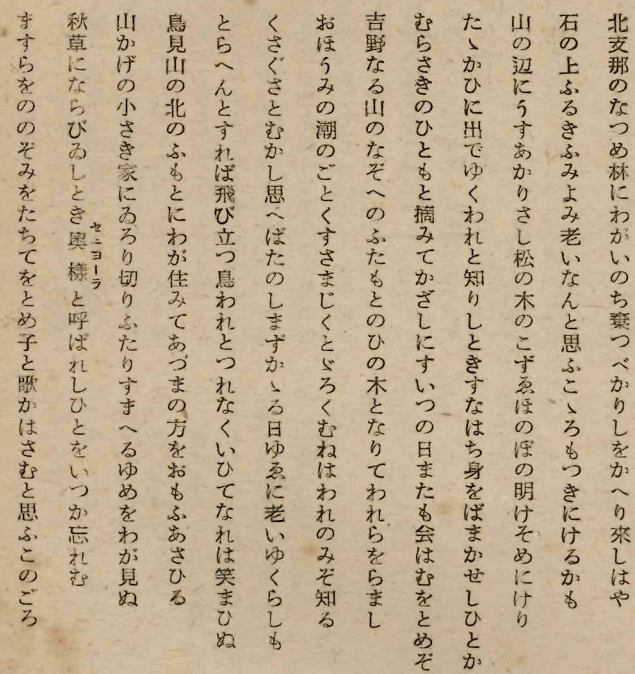 北支那のなつめ林にわがいのち棄つべかりしをかへり來しはや
石の上ふるきふみよみ老いなんと思ふこゝろもつきにけるかも
山の辺にうすあかりさし松の木のこずゑほのぼの明けそめにけり
たゝかひに出でゆくわれと知りしときすなはち身をばまかせしひとか
むらさきのひともと摘みてかざしにすいつの日またも会はむをとめぞ
吉野なる山のなぞへのふたもとのひの木となりてわれらをらまし
おほうみの潮のごとくすさまじくとゞろくむねはわれのみぞ知る
くさぐさとむかし思へばたのしまずかゝる日ゆゑに老いゆくらしも
とらへんとすれば飛び立つ鳥われとつれなくいひてなれは笑まひぬ
鳥見山の北のふもとにわが住みてあづまの方をおもふあさひる
山かげの小さき家にゐろり切りふたりすまへるゆめをわが見ぬ
秋草にならびゐしとき奥様セニヨーラと呼ばれしひとをいつか忘れむ
ますらをののぞみをたちてをとめ子と歌かはさむと思ふこのごろ